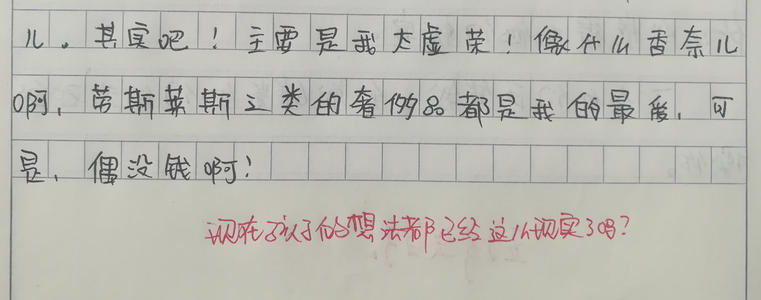 儿。其实吧！主要是我太虚荣！像什么香奈儿
啊，劳斯莱斯之类的奢侈品都是我的最爱，可
是，偶没钱啊！
现在孩子的想法都已经这么现实了吗？